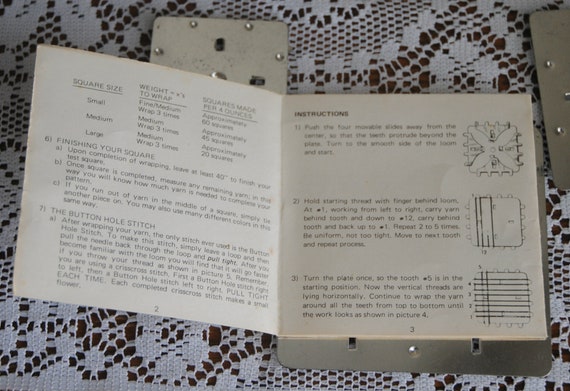 SQUARE SIZE WEIGHT – x's TO WRAP SQUARES MADE PER 4 OUNCES
Small Fine/Medium Wrap 3 times Approximately 60 squares
Medium Medium Wrap 3 times Approximately 45 squares
Large Medium Wrap 3 times Approximately 20 squares
6) FINISHING YOUR SQUARE
a) Upon completion of wrapping, leave at least 40" to finish your
test square.
b) Once square is completed, measure any remaining yarn; in this
way you will know how much yarn is needed to complete your
c) If you run out of yarn in the middle of a square, simply tie
another piece on. You may also use many different colors in this
same way.
7) THE BUTTON HOLE STITCH
a) After wrapping your yarn, the only stitch ever used is the Button
Hole Stitch. To make this stitch, simply leave a loop and then
pull the needle back through the loop and pull tight. After you
become familiar with the loom you will find that it will go faster
if you throw your thread as shown in picture 5. Remember,
you are using a crisscross stitch. First a Button Hole stitch right
to left, then a Button Hole stitch left to right. PULL TIGHT
EACH TIME. Each completed crisscross stitch makes a small
flower.
2
INSTRUCTIONS
1) Push the four movable slides away from the
center, so that the teeth protrude beyond the
plate. Turn to the smooth side of the loom
and start.
2) Hold starting thread with finger behind loom.
At #1, working from left to right, carry yarn
behind tooth and down to #12, carry behind
tooth and back up to #1. Repeat 2 to 5 times.
Be uniform, not too tight. Move to next tooth
and repeat process.
12
3) Turn the plate once, so the tooth #5 is in the
starting position. Now the vertical threads are
lying horizontally. Continue to wrap the yarn
around all the teeth from top to bottom until
the work looks as shown in picture 4.
5
4
3
2
1
3